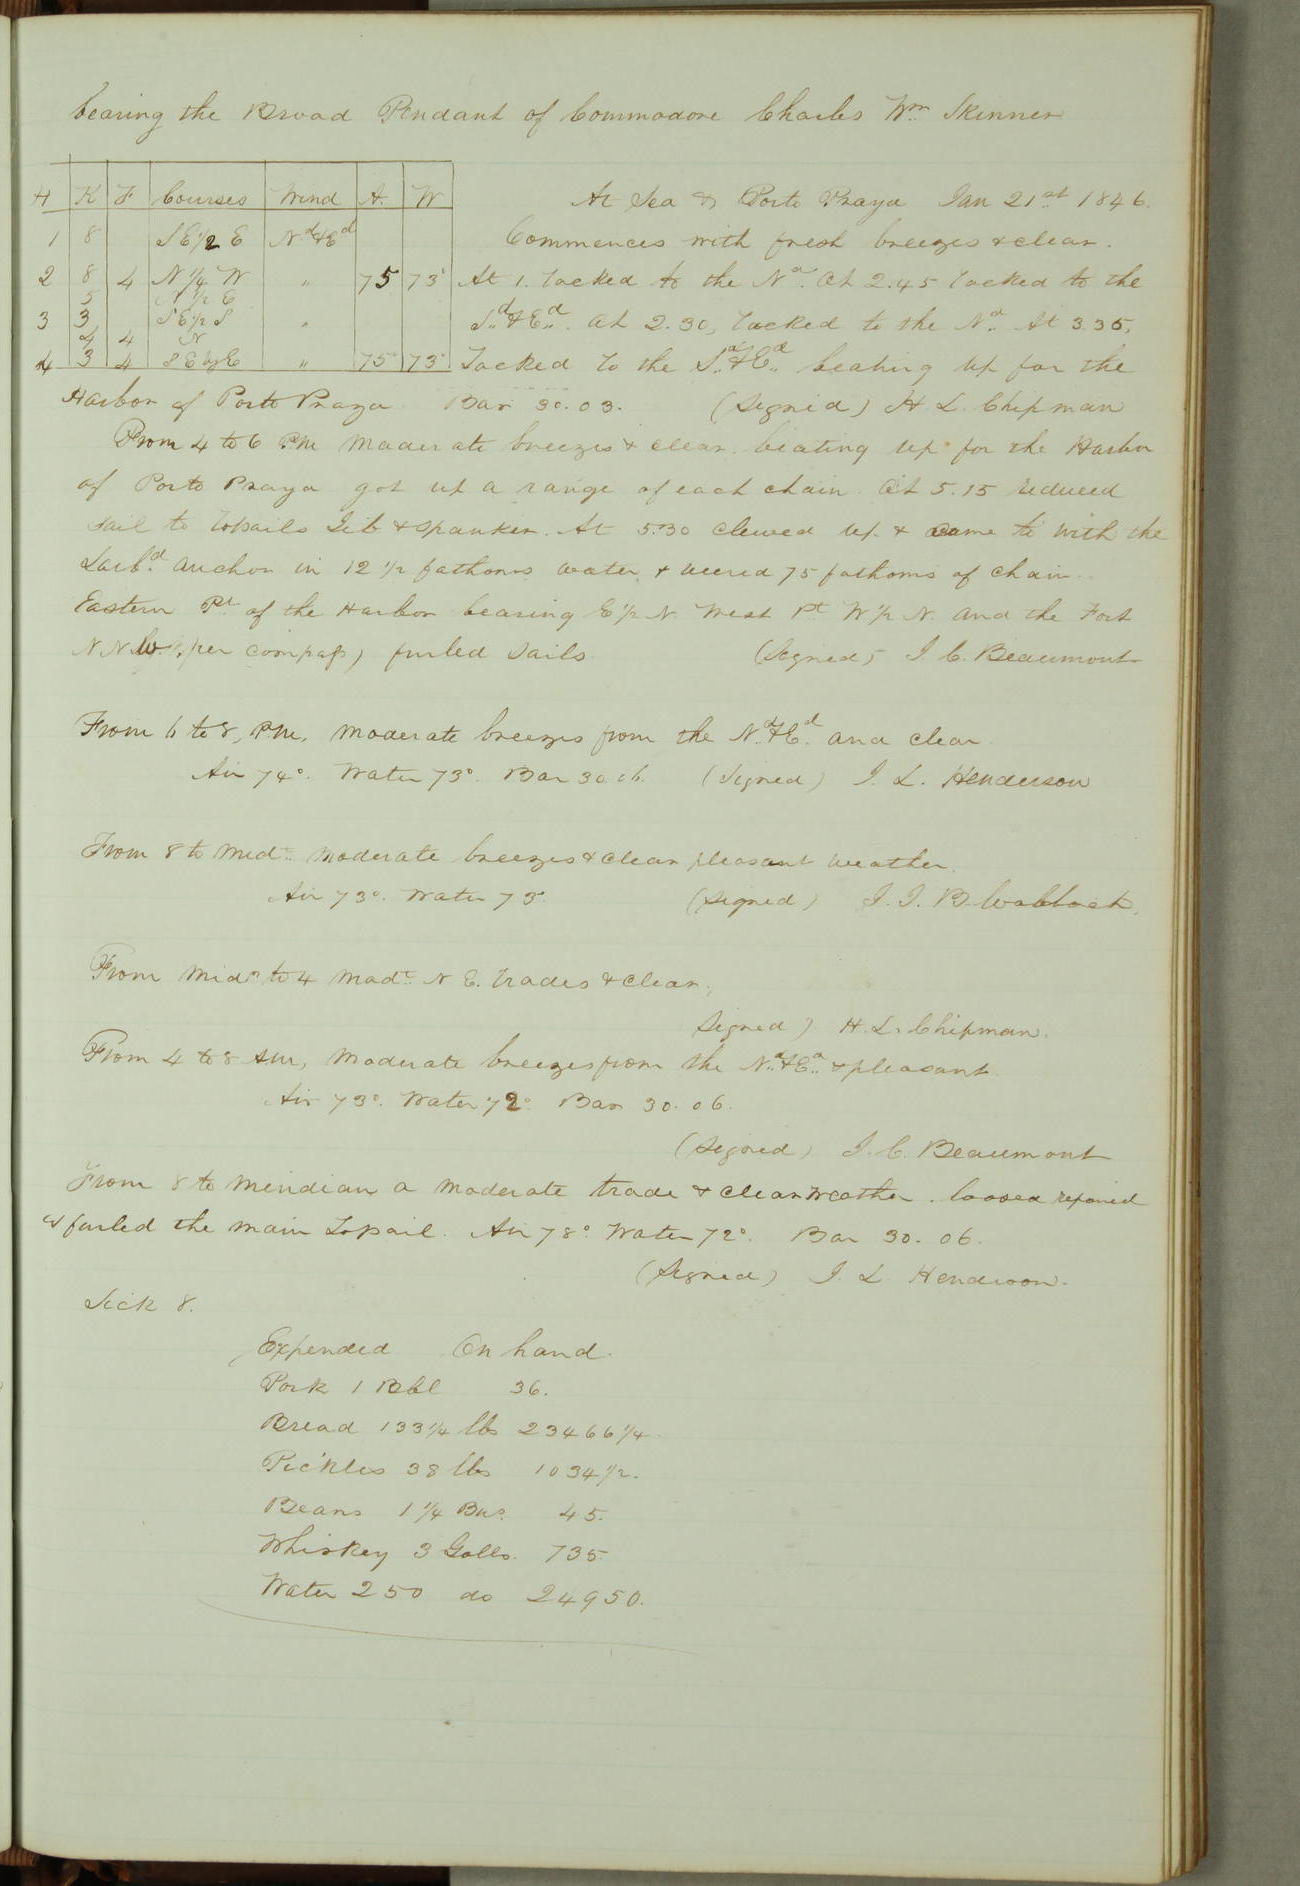 bearing the Broad Pendant of Commodore Charles Wm Skinner
H K F Courses Wind A. W
At Sea & Porto Praya Jan 21st 1846.
1 8 SE 1/2 E Nd&Ed
Commences with fresh breezes & clear.
2 8 4 N 1/4 W " 75 73°
At 1. tacked to the Nd. At 2.45 tacked to the
5 N 1/2 E
3 3 SE 1/2 S "
Sd&Ed. At 2.30, tacked to the Nd. At 3.35,
4 4 N
4 3 4 SE by E " 75° 73°
Tacked to the Sd&Ed. beating up for the
Harbor of Porto Praya Bar 30.03. (Signed) H L. Chipman
From 4 to 6 P.M. Moderate breezes & clear. beating up for the Harbor
of Porto Praya got up a range of each chain. At 5.15 reduced
sail to topsails Jib & spanker. At 5.30 clewed up & came to with the
Larbd. anchor in 12 1/2 fathoms water & veered 75 fathoms of chain.
Eastern Pt of the Harbor bearing E 1/2 N West Pt W 1/2 N. and the Fort
N N W. (per compass) furled sails (Signed) J. C. Beaumont
From 6 to 8, P.M. Moderate breezes from the Nd.&Ed. and clear
Air 74°. Water 73°. Bar 30 06. (Signed) J. L. Henderson
From 8 to Midt. Moderate breezes & clear pleasant weather.
Air 73°. Water 73°. (Signed) J. J. B.
From Midt to 4 Modt. N E. trades & clear.
Signed) H. L. Chipman.
From 4 to 8 AM, Moderate breezes from the Nd.&Ed. & pleasant.
Air 73°. Water 72°. Bar 30. 06.
(Signed) J. C. Beaumont
From 8 to Meridian a moderate trade & clear weather. loosed
& furled the main Topsail. Air 78° Water 72°. Bar 30. 06.
(Signed) J. L Henderson.
Sick 8.
Expended On hand.
Pork 1 Bbl 36.
Bread 133 1/4 lbs 23466 1/4
Pickles 38 lbs 1034 1/2.
Beans 1 1/4 Bus. 45.
Whiskey 3 Galls. 735.
Water 250 do 24950.